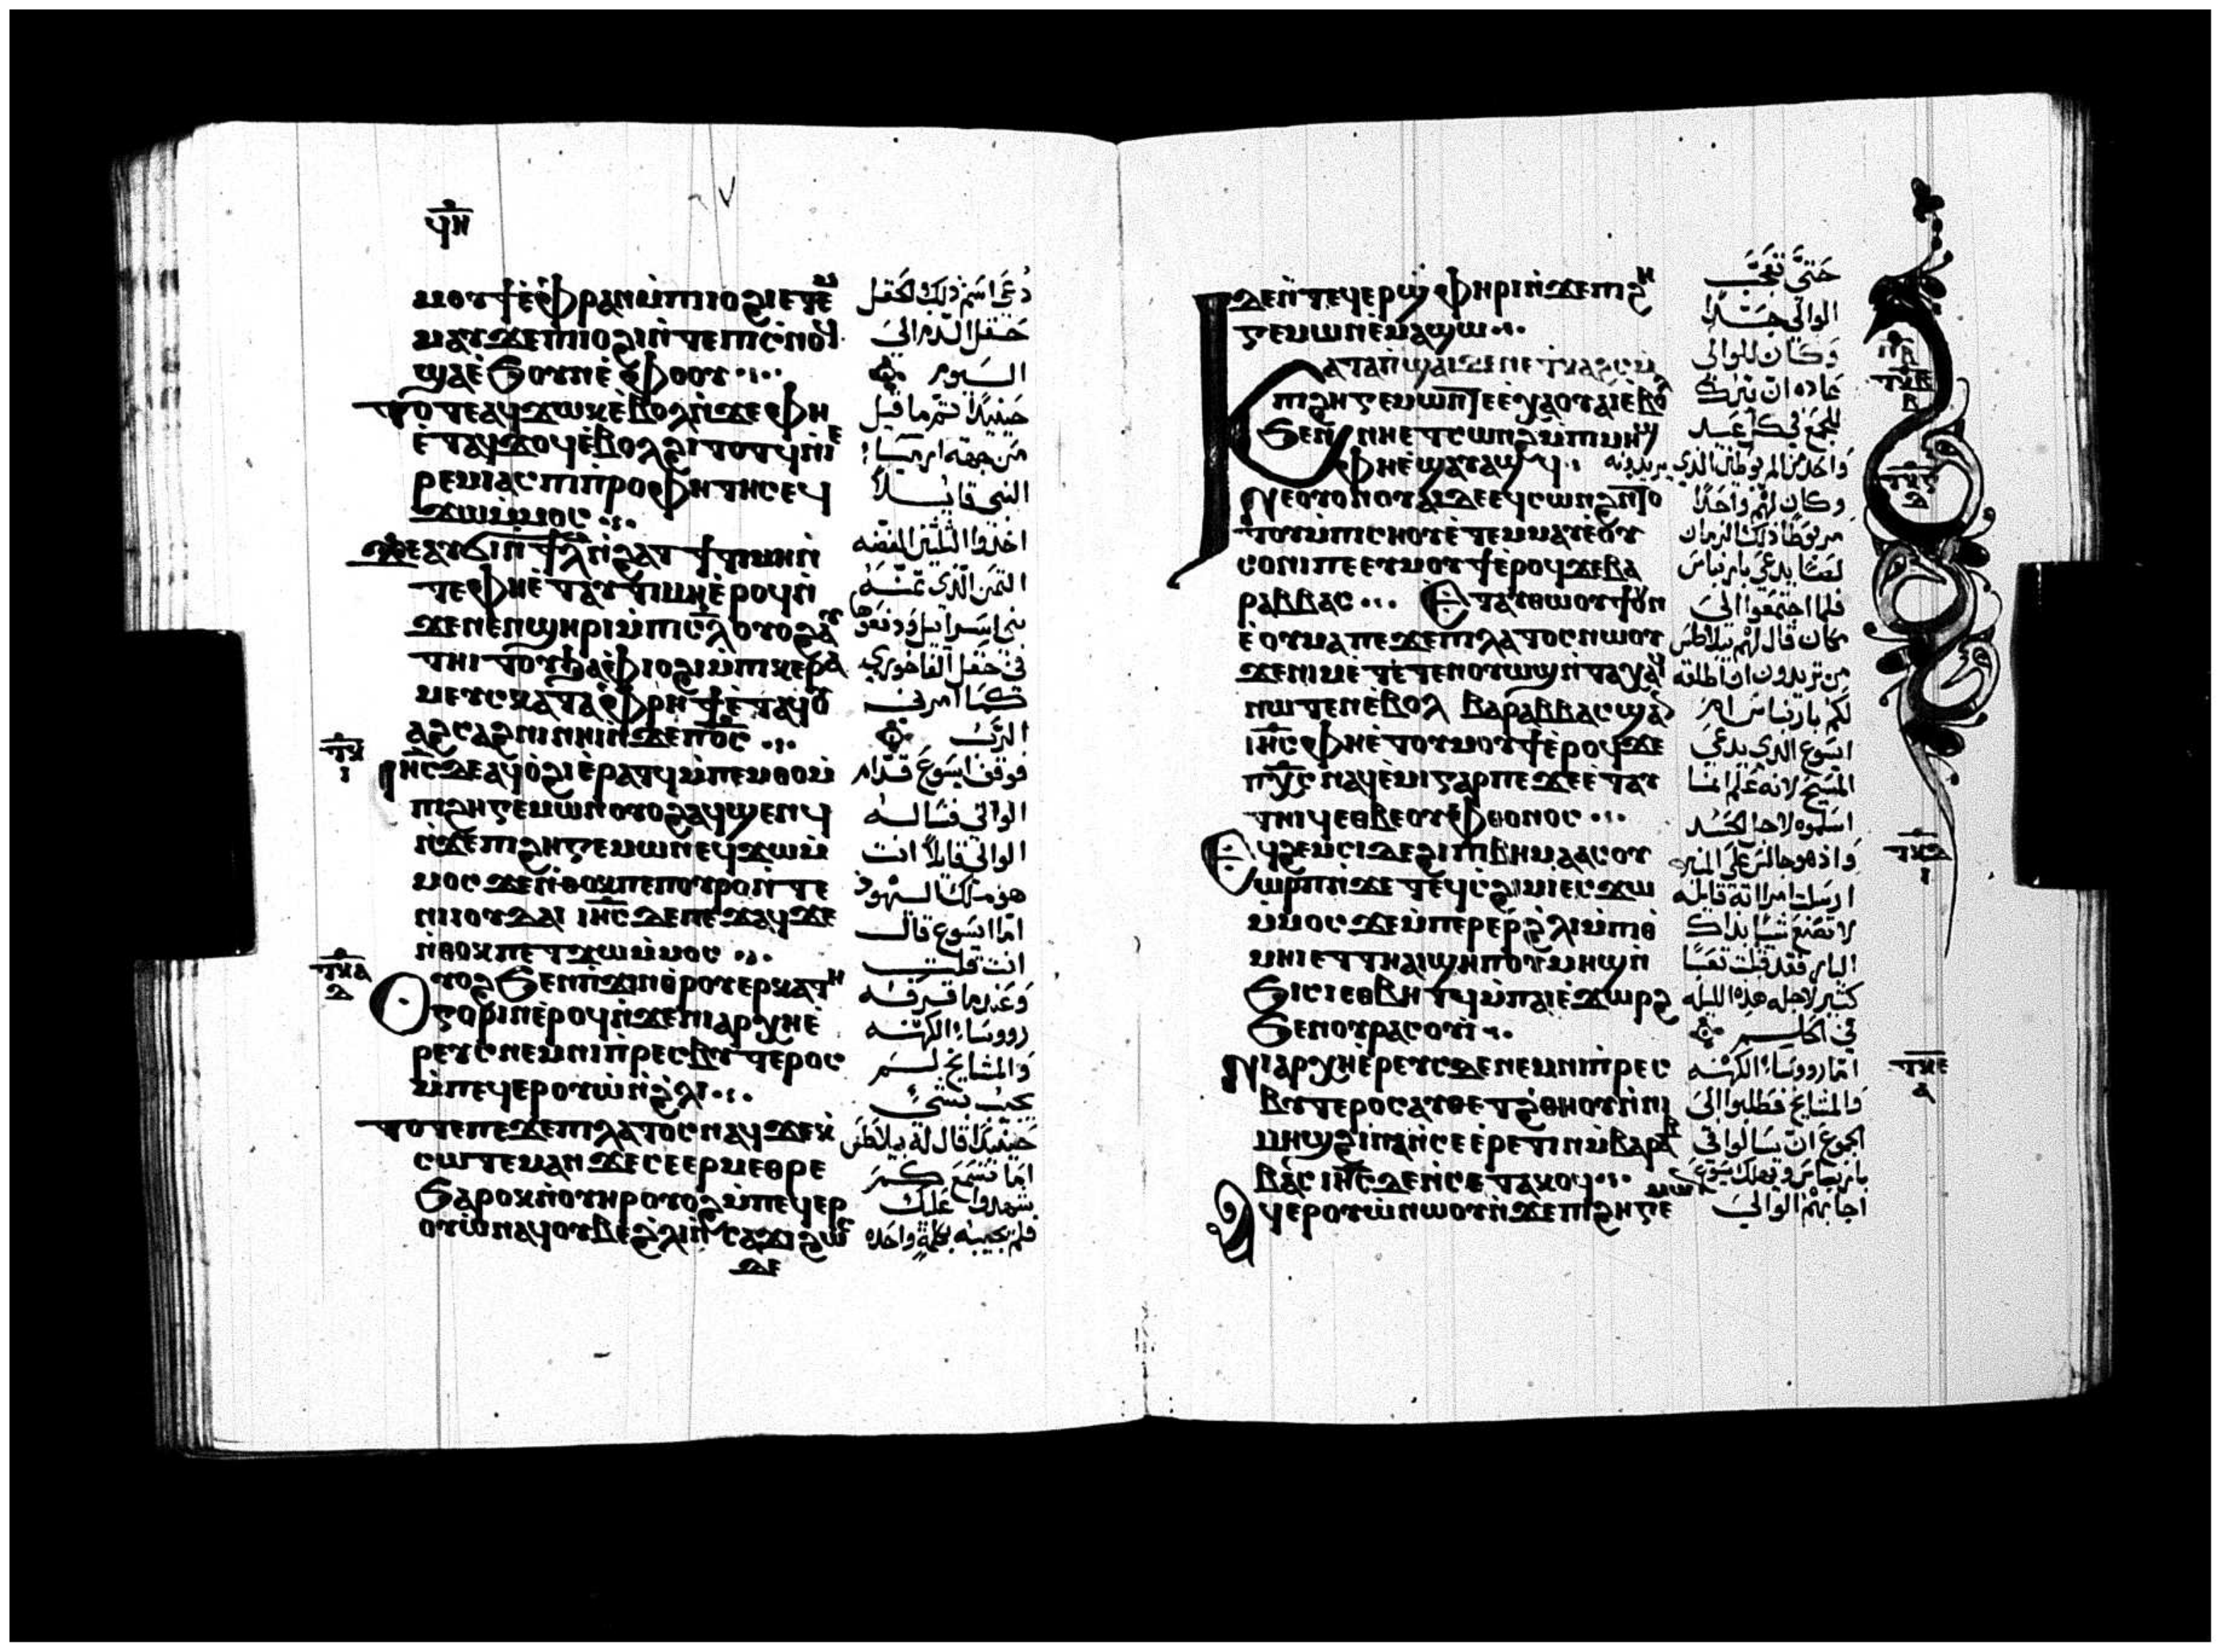 ϥⲏ
ⲙⲟⲩϯ ⲉ̀ⲫⲣⲁⲛ ⲙ̀ⲡⲓⲓⲟϩⲓ ⲉⲧⲉ
ⲙⲙⲁⲩ ϫⲉ ⲡⲓⲓⲟϩⲓ ⲛ̀ⲧⲉ ⲡⲓⲥⲛⲟϥ
ϣⲁ ⲉ̀ϧⲟⲩⲛ ⲉ̀ⲫⲟⲟⲩ
ⲧⲟⲧⲉ ⲁϥϫⲱⲕ ⲉ̀ⲃⲟⲗ ⲛ̀ϫⲉ ⲫⲏ
ⲉ̀ⲧⲁϥϫⲟϥ ⲉ̀ⲃⲟⲗ ϩⲓⲧⲟⲧϥ ⲛ̀ⲓⲉ
ⲣⲉⲙⲓⲁⲥ ⲡⲓⲡ̀ⲣⲟⲫⲏⲧⲏⲥ ⲉϥ
ϫⲱ ⲙ̀ⲙⲟⲥ
ϫⲉ ⲁⲩϭⲓ ⲛ̀ϯⲗ̅ ⲛ̀ϩⲁⲧ ϯⲧⲓⲙⲏ ⲛ̀
ⲧⲉ ⲫⲏ ⲉ̀ⲧⲁⲩⲧⲓⲙⲏ ⲉ̀ⲣⲟϥ ⲛ̀
ϫⲉ ⲛⲉⲛϣⲏⲣⲓ ⲙ̀ⲡⲓⲥ̅ⲗ̅ ⲟⲩⲟϩ ⲁⲩ
ⲧⲏⲓⲧⲟⲩ ϧⲁ ⲫⲓⲟϩⲓ ⲙ̀ⲡⲓⲕⲉⲣⲁ
ⲙⲉⲩⲥ ⲕⲁⲧⲁ ⲫⲣⲏϯ ⲉ̀ⲧⲁϥⲟⲩ
ⲁϩⲥⲁϩⲛⲓ ⲛⲏⲓ ⲛ̀ϫⲉ ⲡ̅ⲟ̅ⲥ̅
ⲧⲕ
ⲓ
ⲓⲏ̅ⲥ̅ ⲇⲉ ⲁϥⲟ̀ϩⲓ ⲉ̀ⲣⲁⲧϥ ⲙ̀ⲡⲉⲙⲑⲟ ⲙ̀
ⲡⲓϩⲏⲅⲉⲙⲱⲛ ⲟⲩⲟϩ ⲁϥϣⲉⲛϥ
ⲛ̀ϫⲉ ⲡⲓϩⲏⲅⲉⲙⲱⲛ ⲉϥϫⲱ ⲙ̀
ⲙⲟⲥ ϫⲉ ⲛ̀ⲑⲟⲕ ⲡⲉ ⲡⲟⲩⲣⲟ ⲛ̀ⲧⲉ
ⲛⲓⲓⲟⲩⲇⲁⲓ ⲓⲏ̅ⲥ̅ ⲇⲉ ⲡⲉϫⲁϥ ϫⲉ
ⲛ̀ⲑⲟⲕ ⲡⲉⲧϫⲱ ⲙ̀ⲙⲟⲥ
ⲧⲕⲁ
ⲇ
ⲟⲩⲟϩ ϧⲉⲛ ⲡ̀ϫⲓⲛⲑⲣⲟⲩⲉⲣⲕⲁⲧⲏ
ⲅⲟⲣⲓⲛ ⲉ̀ⲣⲟϥ ⲛ̀ϫⲉ ⲛⲓⲁⲣⲭⲏⲉ̀
ⲣⲉⲩⲥ ⲛⲉⲙ ⲛⲓⲡ̀ⲣⲉⲥⲃⲩⲧⲉⲣⲟⲥ
ⲙ̀ⲡⲉϥⲉⲣⲟⲩⲱ̀ ⲛ̀ϩ̀ⲗⲓ
ⲧⲟⲧⲉ ⲡⲉϫⲉ ⲡⲓⲗⲁⲧⲟⲥ ⲛⲁϥ ϫⲉ ⲕ̀
ⲥⲱⲧⲉⲙ ⲁⲛ ϫⲉ ⲥⲉⲉⲣⲙⲉⲑⲣⲉ
ϧⲁⲣⲟⲕ ⲛ̀ⲟⲩⲏⲣ ⲟⲩⲟϩ ⲙ̀ⲡⲉϥⲉⲣ
ⲟⲩⲱ̀ ⲛⲁϥ ⲟⲩⲃⲉ ϩ̀ⲗⲓ ⲛ̀ⲥⲁϫⲓ ϩⲱⲥ
ϫⲉ
دعي اسم ذلك الحقل
حقل الدم الى
اليوم
حينيذ تم ما قيل
من جهة ارميا
النبي قايلا
اخذوا الثلثين الفضه
الثمن الذي ثمنه
بني اسراييل ودفعوها
في حقل الفاخوري
كما امرني
الرب
فوقف ايسوع قدام
الوالي فساله
الوالي قايلا انت
هو ملك اليهود
اما ايسوع قال
انت قلت
وعندما قرفه
رووساء الكهنه
والمشايخ لم
يجيب بشي
حينيذ قال له بيلاطس
اما تسمع كم
يشهدوا عليك
فلم يجيبه بكلمة واحده
ϧⲉⲛ ⲧⲉϥⲉⲣϣ̀ⲫⲏⲣⲓ ⲛ̀ϫⲉ ⲡⲓϩⲏ
ⲅⲉⲙⲱⲛ ⲉ̀ⲙⲁϣⲱ
ⲕⲁⲧⲁ ⲡ̀ϣⲁⲓ ⲇⲉ ⲛⲉ ⲧⲕⲁϩⲥ ⲙ̀
ⲡⲓϩⲏⲅⲉⲙⲱⲛ ⲡⲉ ⲉ̀ⲭⲁ ⲟⲩⲁⲓ ⲉ̀ⲃⲟⲗ
ϧⲉⲛ ⲛⲏⲉⲧⲥⲱⲛϩ ⲙ̀ⲡⲓⲙⲏϣ
ⲫⲏ ⲉ̀ϣⲁⲩⲟⲩⲁϣϥ
ⲛⲉ ⲟⲩⲟⲛ ⲟⲩⲁⲓ ⲇⲉ ⲉϥⲥⲱⲛϩ ⲛ̀ⲧⲟ
ⲧⲟⲩ ⲙ̀ⲡⲓⲥⲛⲟⲩ ⲉ̀ⲧⲉⲙⲙⲁⲩ ⲉ̀ⲟⲩ
ⲥⲟⲛⲓ ⲡⲉ ⲉⲩⲙⲟⲩϯ ⲉ̀ⲣⲟϥ ϫⲉ ⲃⲁ
ⲣⲁⲃⲃⲁⲥ ⲉ̀ⲧⲁⲩⲑⲱⲟⲩϯ ⲟⲩⲛ
ⲉ̀ⲟⲩⲙⲁ ⲡⲉϫⲉ ⲡⲓⲗⲁⲧⲟⲥ ⲛⲱⲟⲩ
ϫⲉ ⲛⲓⲙ ⲉ̀ⲧⲉⲧⲉⲛⲟⲩⲱϣ ⲛ̀ⲧⲁⲭⲁϥ
ⲛⲱⲧⲉⲛ ⲉ̀ⲃⲟⲗ ⲃⲁⲣⲁⲃⲃⲁⲥ ϣⲁⲛ
ⲓⲏ̅ⲥ̅ ⲫⲏ ⲉ̀ⲧⲟⲩⲙⲟⲩϯ ⲉ̀ⲣⲟϥ ϫⲉ
ⲡⲭ̅ⲥ̅ ⲛⲁϥⲉ̀ⲙⲓ ⲅⲁⲣ ⲡⲉ ϫⲉ ⲉ̀ⲧⲁⲩ
ⲧⲏⲓϥ ⲉⲑⲃⲉ ⲟⲩⲫⲑⲟⲛⲟⲥ
ⲉϥϩⲉⲙⲥⲓ ⲇⲉ ϩⲓ ⲡⲓⲃⲏⲙⲁ ⲁⲥⲟⲩ
ⲱⲣⲡ ⲛ̀ϫⲉ ⲧⲉϥⲥϩⲓⲙⲓ ⲉⲥϫⲱ
ⲙ̀ⲙⲟⲥ ϫⲉ ⲙ̀ⲡⲉⲣⲉⲣ ϩ̀ⲗⲓ ⲙ̀ⲡⲓⲑ
ⲙⲏⲓ ⲉⲧⲧⲏ ⲁⲓϣⲉⲡ ⲟⲩⲙⲏϣ ⲛ̀
ϧⲓⲥⲓ ⲉⲑⲃⲏⲧϥ ⲙ̀ⲡⲁⲓⲉ̀ϫⲱⲣϩ
ϧⲉⲛ ⲟⲩⲣⲁⲥⲟⲩⲓ̀
ⲛⲓⲁⲣⲭⲏⲉ̀ⲣⲉⲩⲥ ⲇⲉ ⲛⲉⲙ ⲛⲓⲡ̀ⲣⲉⲥ
ⲃⲩⲧⲉⲣⲟⲥ ⲁⲩⲑⲉⲧ ⲡ̀ϩⲏⲧ ⲛ̀ⲛⲓ
ⲙⲏϣ ϩⲓⲛⲁ ⲛ̀ⲥⲉⲉ̀ⲣⲉⲧⲓⲛ ⲙ̀ⲃⲁⲣⲁⲃ
ⲃⲁⲥ ⲓⲏ̅ⲥ̅ ⲇⲉ ⲛ̀ⲥⲉⲧⲁⲕⲟϥ
ⲁϥⲉⲣⲟⲩⲱ̀ ⲛⲱⲟⲩ ⲛ̀ϫⲉ ⲡⲓϩⲏⲅⲉ
ⲙⲱⲛ
حتى تعجب
الوالي جدا
وكان للوالي
عاده ان يترك
للجمع في كل عيد
واحد من المربوطين الذي يريدونه
وكان لهم واحدا
مربوطا ذلك الزمان
لصا يدعي بارنباس
فلما اجتمعوا الى
مكان قال لهم بيلاطس
من تريدون ان اطلقه
لكم بارنباس ام
ايسوع الذي يدعي
المسيح لانه علم انما
اسلموه لاجل الحسد
واذ هو جالس على المنبر
ارسلت امراته قايله
لا تصنع شيا بذاك
البار فقد قبلت تعبا
كثير لاجله هذه الليله
في الحلم
اما رووساء الكهنه
والمشايخ فطلبوا الى
الجموع ان يسالوا في
بارنباس ويهلك ايسوع
اجابهم الوالي
ⲧⲕⲃ
ⲃ
ⲧⲕⲅ
ⲇ
ⲧⲕⲇ
ⲓ
ⲧⲕⲉ
ⲁ